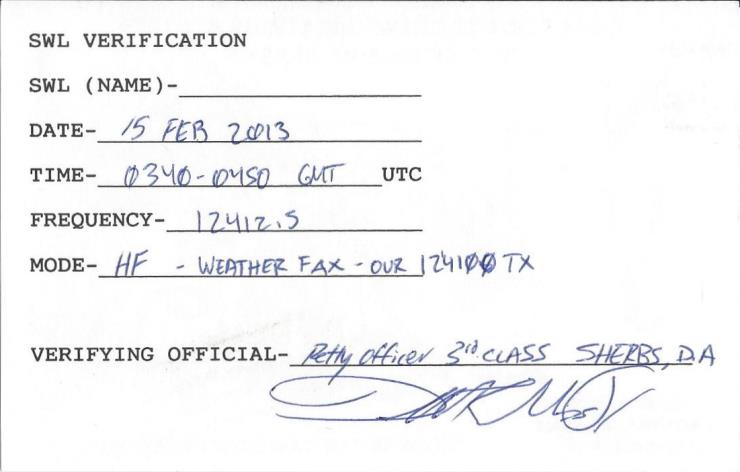 SWL VERIFICATION
SWL (NAME)-
DATE- 15 FEB 2013
TIME- 0340-0450 GMT UTC
FREQUENCY- 12412.5
MODE- HF - WEATHER FAX - OUR 124100 TX
VERIFYING OFFICIAL- Petty Officer 3rd CLASS SHERBS, D.A